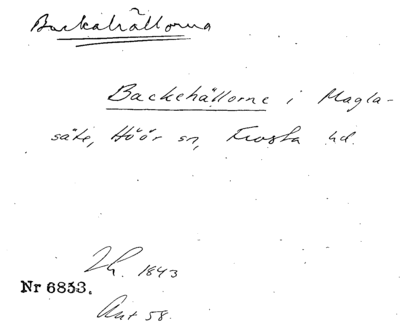 Backahällorna
Backehällorne i Magla-
säte, Höör sn, Frosta hd.
Lh. 1843
Nr 6853.
Ant 58.